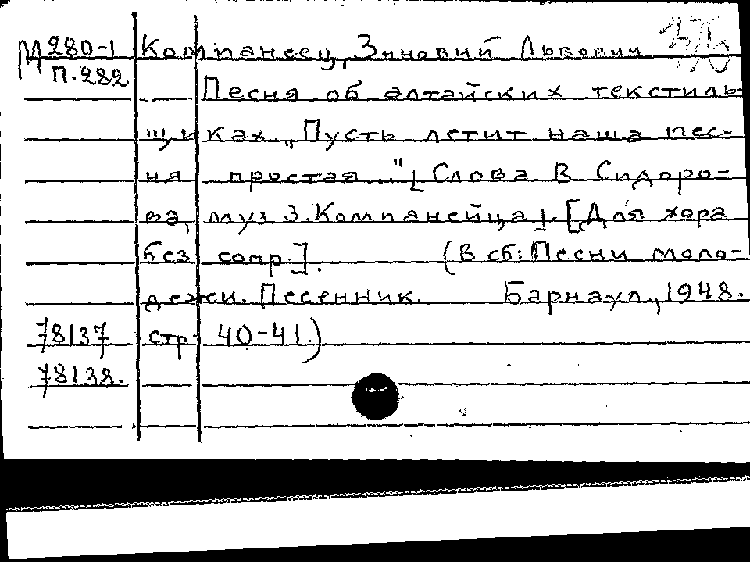 М 280-1 Компанеец, Зиновий Львович
П.282 Песня об алтайских текстиль-
щиках „Пусть летит наша пес-
ня простая..." [Слова В Сидоро-
ва, муз З.Компанейца]. [Для хора
без сопр.]. (В сб: Песни моло-
дежи. Песенник. Барнаул, 1948.
78137 стр. 40-41.)
78138.